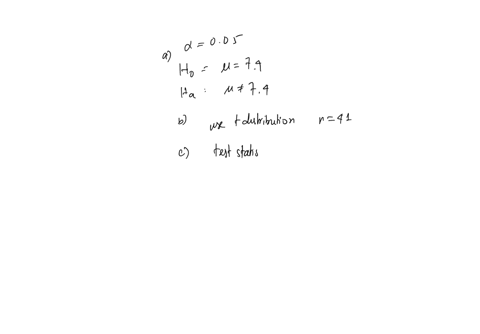 a) α = 0.05
H₀ = μ = 7.4
Ha : μ ≠ 7.4
b) use t distribution n = 41
c) test statis